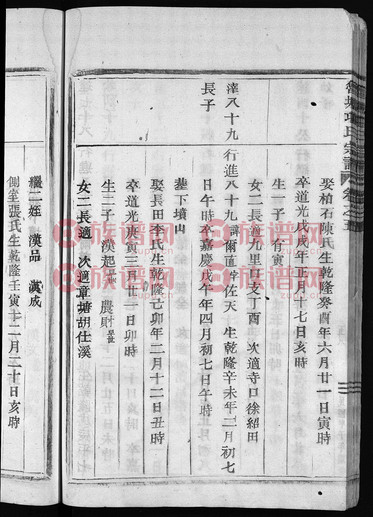 娶柏石陳氏生乾隆癸酉年六月廿一日寅時
卒道光戊戌年正月十七日亥時
生一子 有寅
女二長適九里口女丁酉 次適寺口徐紹田
澤八十九 行進八十九 諱爾 字佐天 生乾隆辛未年二月初七
長子 日午時卒嘉慶戊午年四月初七日午時
墓下墳山
娶長田李氏生乾隆己卯年二月十二日丑時
卒道光庚寅三月廿三日卯時
生二子 漢起 農財
女二長適 次適章塘胡仕溪
繼二姪 漢品 漢成
側室張氏生乾隆壬寅十二月三十日亥時
族谱网
zupu.cn